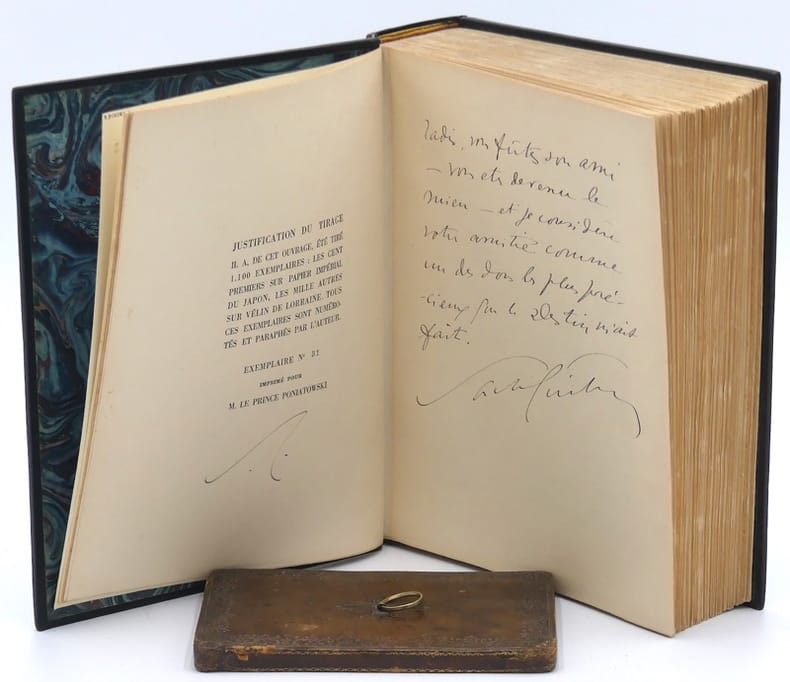 JUSTIFICATION DU TIRAGE
IL A, DE CET OUVRAGE, ÉTÉ TIRÉ
1.100 EXEMPLAIRES : LES CENT
PREMIERS SUR PAPIER IMPÉRIAL
DU JAPON, LES MILLE AUTRES
SUR VÉLIN DE LORRAINE. TOUS
CES EXEMPLAIRES SONT NUMÉRO-
TÉS ET PARAPHÉS PAR L'AUTEUR.
EXEMPLAIRE N° 31
IMPRIMÉ POUR
M. LE PRINCE PONIATOWSKI
Jadis, vous fûtes son ami
– vous êtes devenu le
mien – et je considère
votre amitié comme
un des dons les plus pré-
-cieux que le Destin m'ait
fait.
Sacha Guitry